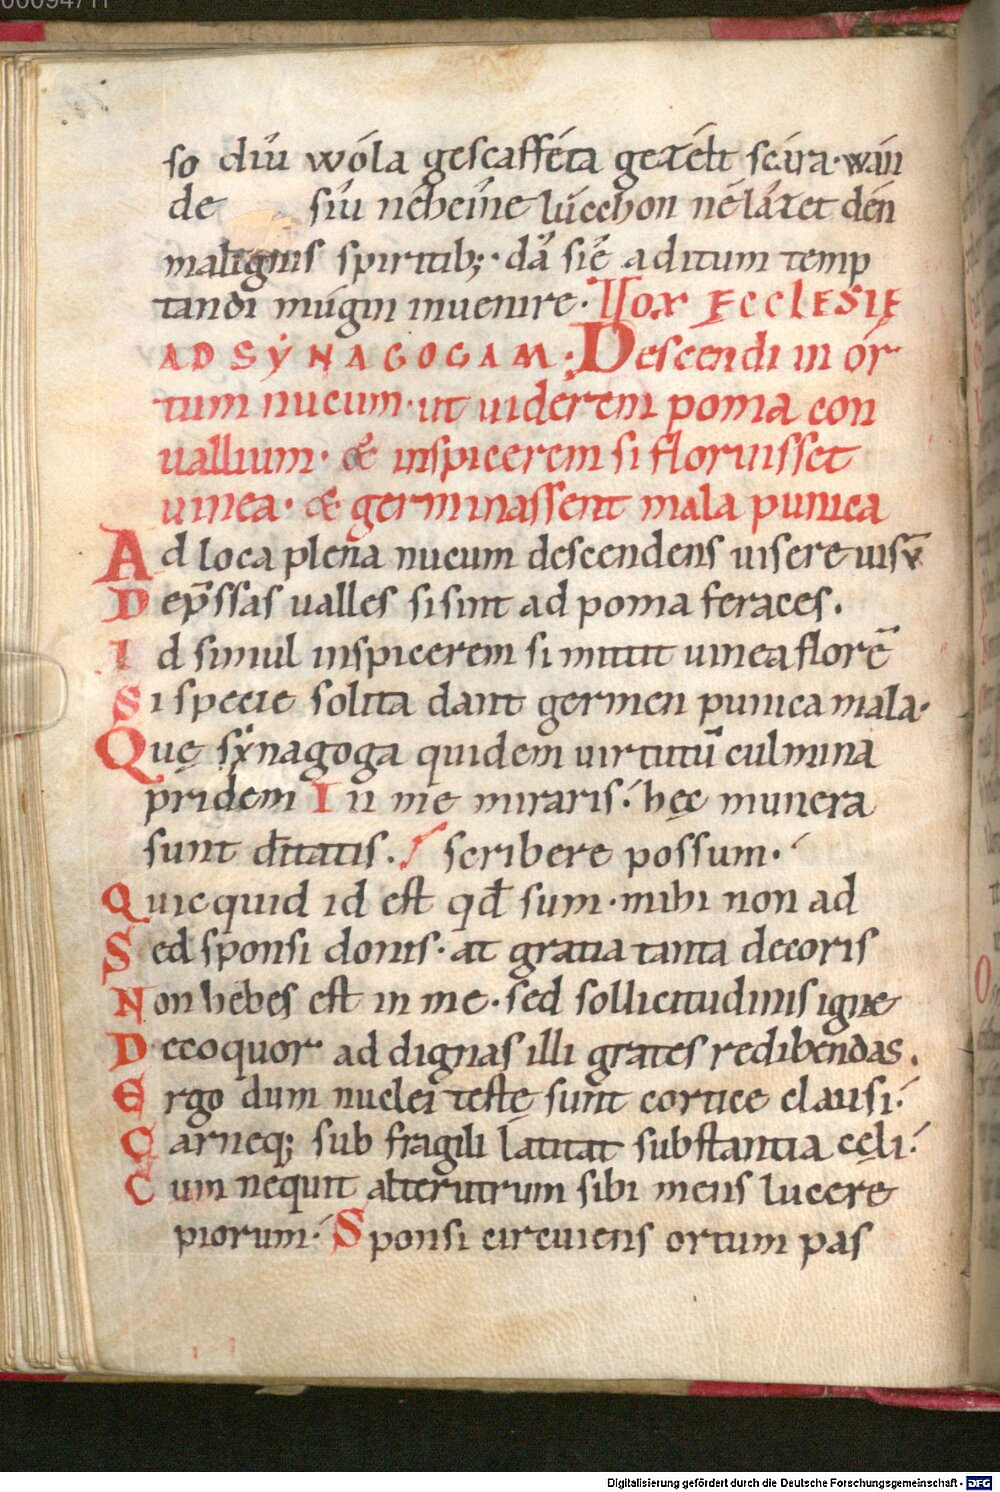 00094711
so diu wóla gescafféta gezélt scîra·wán
de siu nehéine lúcchon nelázet dén
malignis spiritib;· dâ sié aditum temp
tandi múgin inuenire· Uox ECCLESIE
AD SẎNAGOGAM· Descendi in ór
tum nucum· ut uiderem poma con
uallium· & inspicerem si floruisset
uinea· & germinassent mala punica
Ad loca plena nucum descendens uisere uisv̄
Dep̄ssas ualles si sint ad poma feraces.
Id simul inspicerem si mittit uinea florē
Si specie solita dant germen punica mala·
Quę sẏnagoga quidem uirtutū culmina
pridem In me miraris· hęc munera
sunt dītatis. / scribere possum·
Quicquid id est qđ sum· mihi non ad
Sed sponsi donis· at gratia tanta decoris
Non hebes est in me· sed sollicitudinis igne
Decoquor ad dignas illi grates redibendas.
Ergo dum nuclei testę sunt cortice clausi·
Carneq; sub fragili latitat substantia cęli·
Cum nequit alterutrum sibi mens lucere
piorum· Sponsi circuiens ortum pas
Digitalisierung gefördert durch die Deutsche Forschungsgemeinschaft - DFG